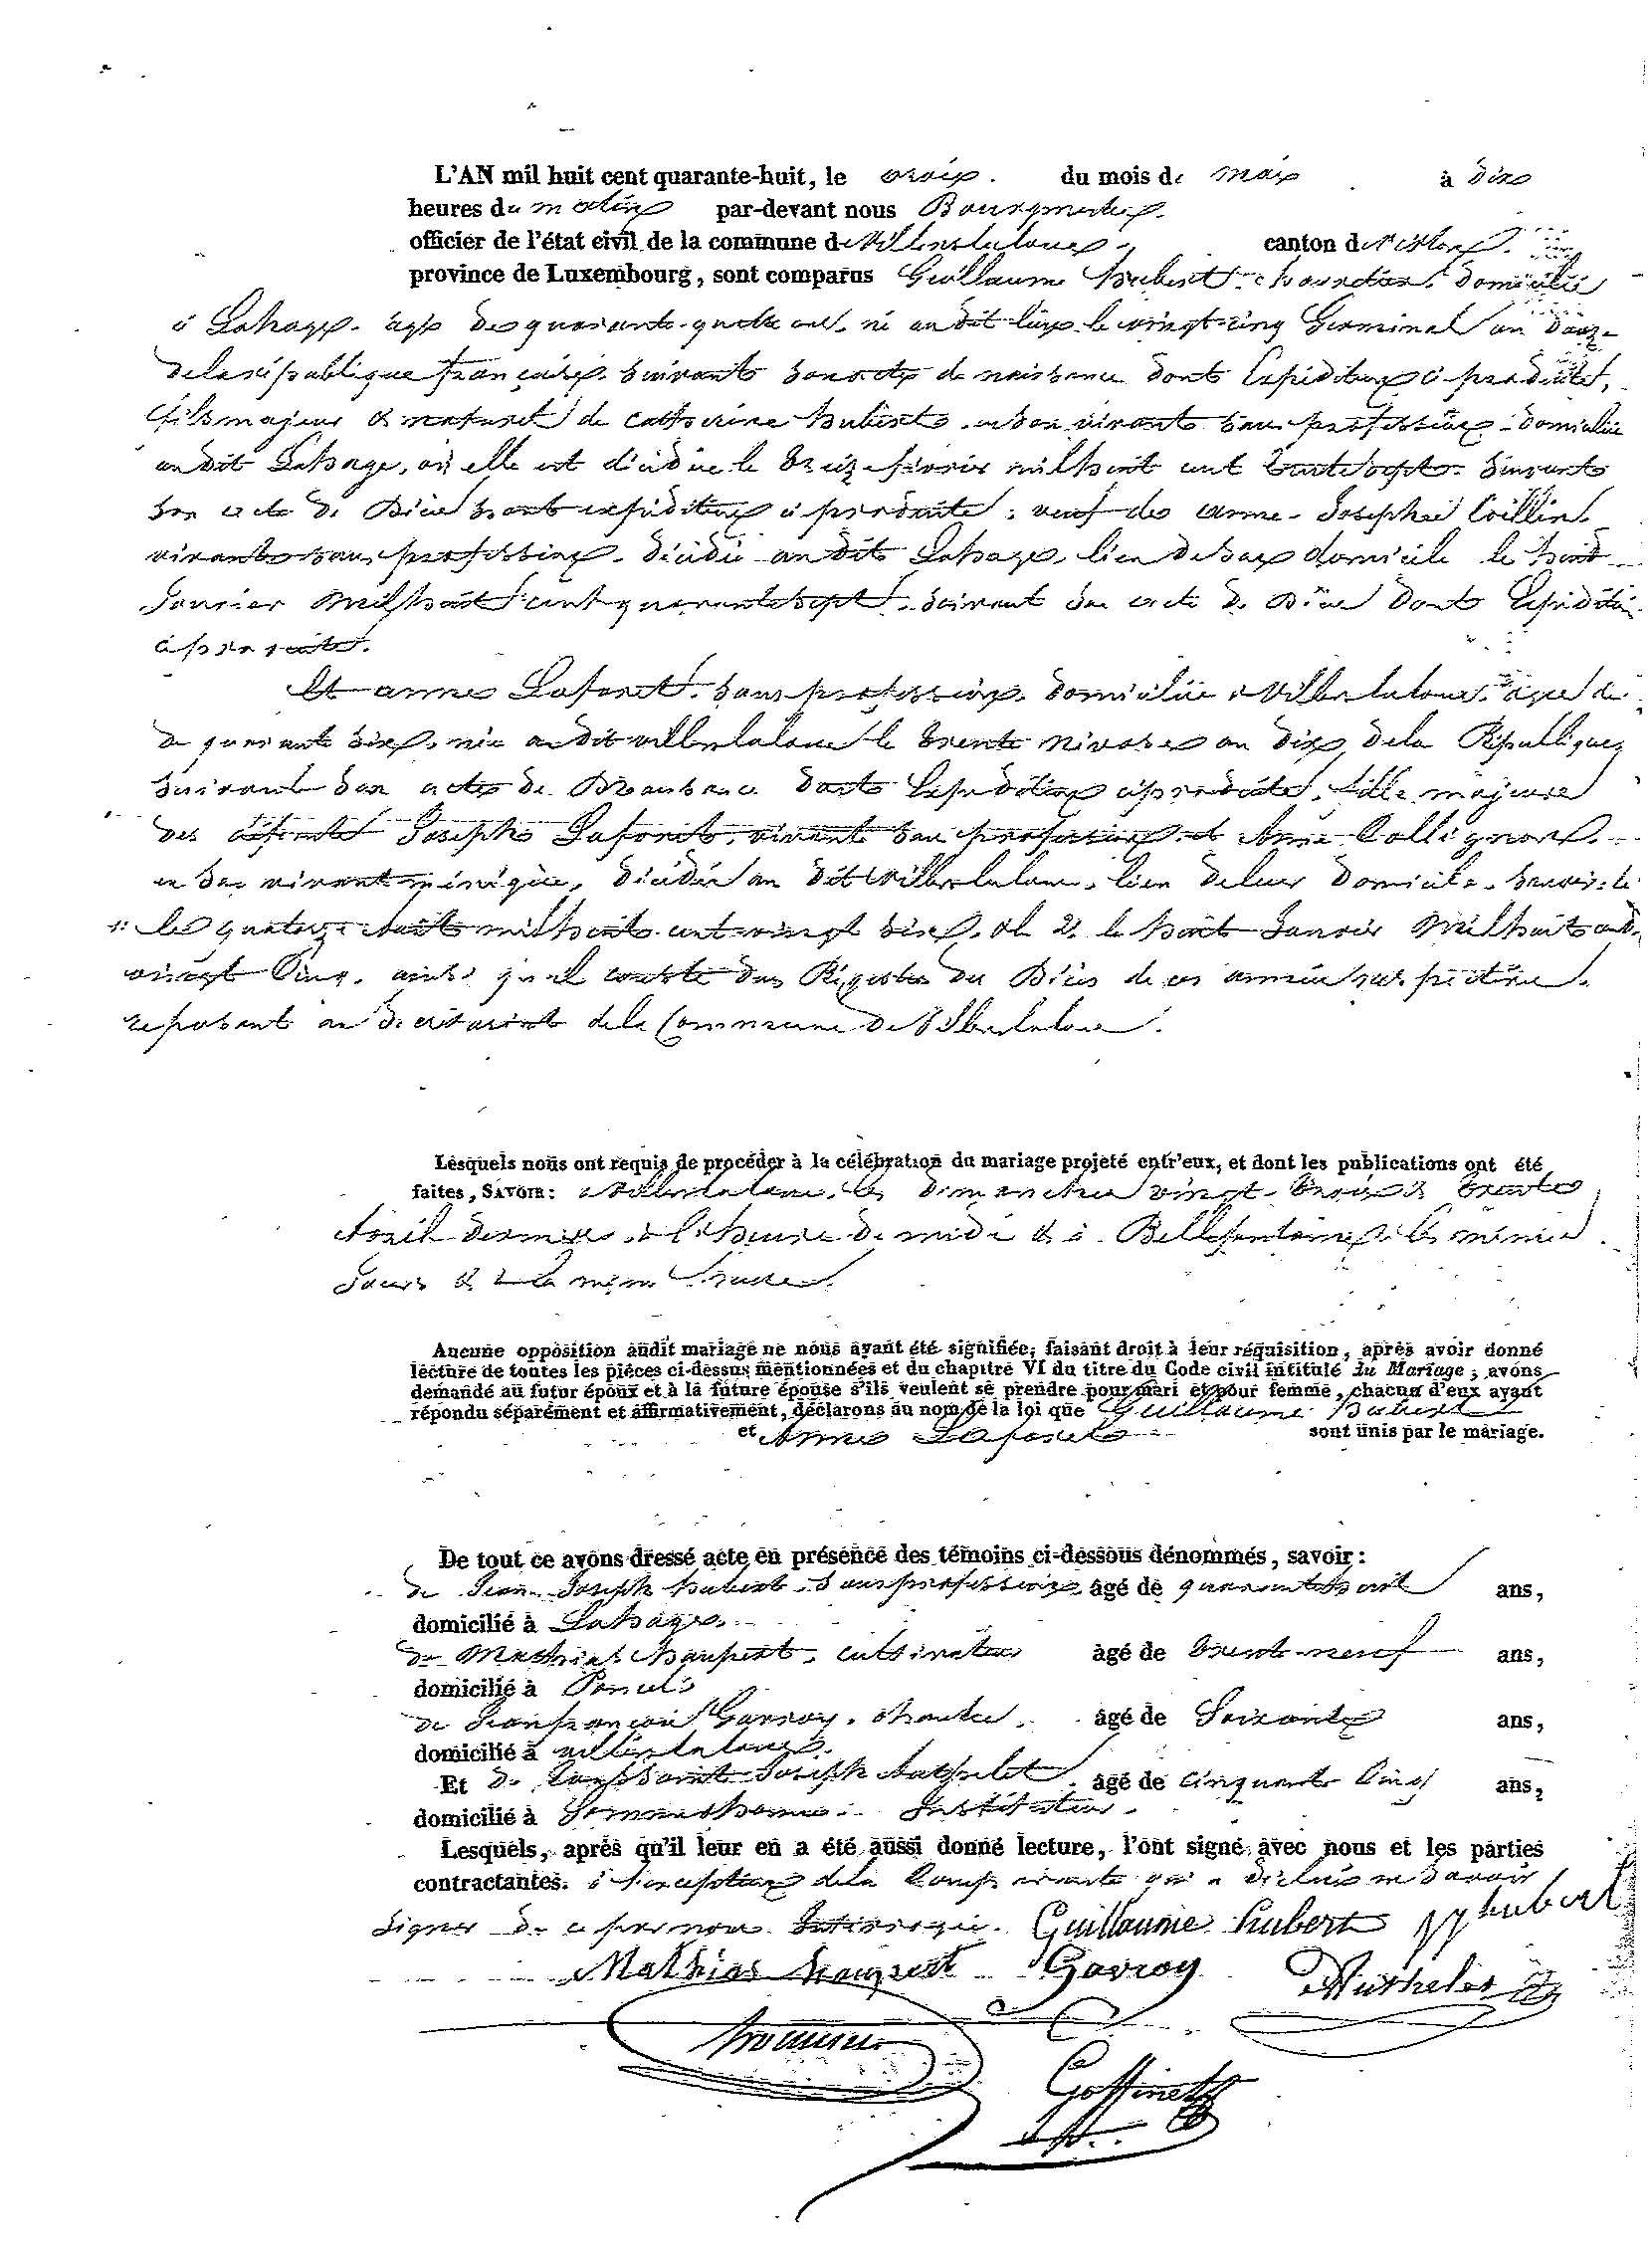 L'AN mil huit cent quarante-huit, le onze du mois de mai à dix
heures du matin par-devant nous Bourgmestre
officier de l'état civil de la commune de Villers la loue, canton de Virton
province de Luxembourg, sont comparus Guillaume hubert domicilié
à Lahage, agé de quarante quatre ans, né au dit lieu le vingt cinq Germinal an douze
de la république française, suivant son acte de naissance dont l'expédition a produite,
fils majeur & naturel de catherine hubert, en son vivant sans profession domiciliée
au dit Lahage, où elle est décédée le treize février mil huit cent trente sept suivant
son acte de Décès dont expédition a produite; veuf de anne Josephe Collin
vivante sans profession, décédée au dit Lahage, lieu de son domicile le huit
Janvier mil huit cent quarante sept, suivant son acte de Décès dont Expédition
a produite.
Et anne Laforet, sans profession, domiciliée à Villers la loue, agée de
de quarante six, née au dit villers la loue le trente nivose an dix de la République,
suivant son acte de Naissance dont l'Expédition a produite, fille majeure
des défunts Joseph Laforet, vivant sans profession et Anne Collignon
en son vivant ménagère, décédés au dit Villers la loue, lieu de leur Domicile, savoir: le
1: le quatorze Août mil huit cent vingt six, & le 2, le huit Janvier Mil huit cent
vingt Cinq, ainsi qu'il conste des Régistres de Décès de ces années respectives
reposant au secrétariat de la Commune de Villers la loue.
Lesquels nous ont requis de procéder à la célébration du mariage projeté entr'eux, et dont les publications ont été
faites, SAVOIR: à Villers la loue, les dimanches vingt trois & trente
Avril dernier, à l'heure de midi & à Bellefontaine les mêmes
Jours & à la même heure.
Aucune opposition audit mariage ne nous ayant été signifiée; faisant droit à leur réquisition, après avoir donné
lecture de toutes les pièces ci-dessus mentionnées et du chapitre VI du titre du Code civil intitulé du Mariage; avons
demandé au futur époux et à la future épouse s'ils veulent se prendre pour mari et pour femme, chacun d'eux ayant
répondu séparément et affirmativement, déclarons au nom de la loi que Guillaume hubert
et Anne Laforet sont unis par le mariage.
De tout ce avons dressé acte en présence des témoins ci-dessous dénommés, savoir:
de Jean Joseph hubert, sans profession âgé de quarante huit ans,
domicilié à Lahage
de Mathias haupert, cultivateur âgé de trente-neuf ans,
domicilié à
de Jean françois Gavroy, âgé de Soixante ans,
domicilié à villers la loue
Et de Toussaint Joseph Authelet âgé de cinquante Cinq ans,
domicilié à Sommethonne Instituteur.
Lesquels, après qu'il leur en a été aussi donné lecture, l'ont signé avec nous et les parties
contractantes. à l'exception de la Comparante qui a déclaré ne savoir
signer de ce par nous Interrogée. Guillaume hubert JJ hubert
Mathias haupert Gavroy Authelet
Goffinet